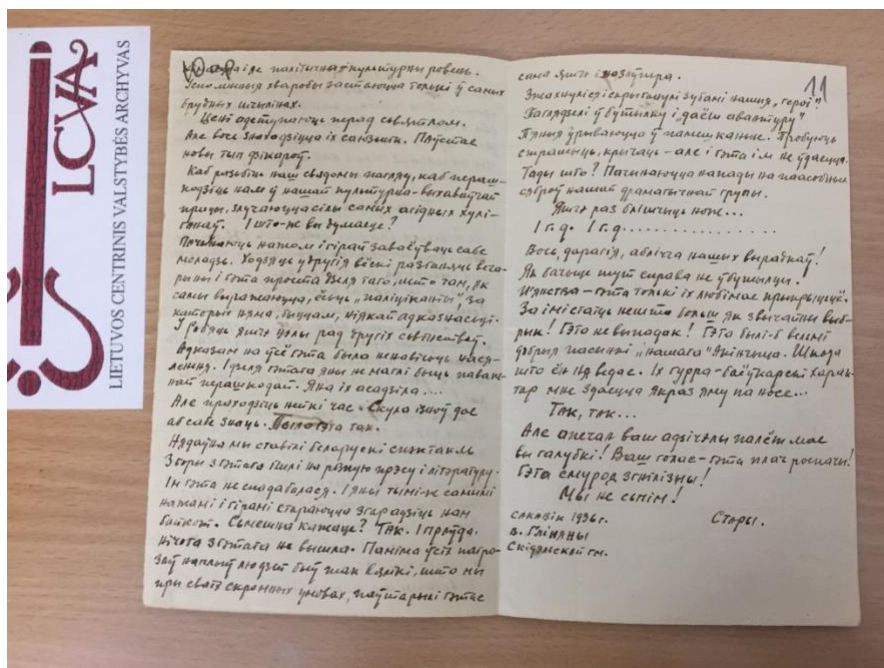 LCVA
LIETUVOS CENTRINIS VALSTYBĖS ARCHYVAS
10
палітычна-культурны ровень.
Успомненыя хваробы застаюцца толькі ў самых
брудных
Цені адступаюць перад сьвятлом.
Але вось знаходзіцца іх саюзьнік. Паўстае
новы тып
Каб разьбіць наш сьвядомы пагляд, каб пераш-
кодзіць нам ў нашай культурна-выхаваўчай
працы, злучаюцца сілы самых агідных хулі-
ганаў. І што-ж вы думаеце?
Пачынаюць нажом і гірай заваёўваць сабе
моладзь. Ходзяць у другія вёскі разганяць веча-
рыны і гэта проста дзеля таго, што там, як
самы выражаюцца, ёсьць „паліцыканты“, за
каторых няма, быццам, ніякай адказнасьці.
Робяць яшчэ цэлы рад другіх
Адказам на ўсё гэта была ненавісьць насе-
леньня. І дзеля гэтага яны не маглі быць паваж-
най перашкодай. Яна іх асадзіла....
Але праходзіць нейкі час. Скула ізноў дае
аб сабе знаць. Было гэта так.
Нядаўна мы ставілі беларускі спэктакль
Зборы з гэтага пашлі на розную прэсу і літэратуру.
Ім гэта не спадабалася. І яны тымі-ж самымі
нажамі і гірамі стараюцца згарадзіць нам
байкот. Сьмешна кажаце? Так. І праўда.
Нічога з гэтага не вышла. Паміма ўсіх пагро-
заў наплыў людзей быў так вялікі, што мы
пры сваіх скромных умовах, паўтарылі гэтае
11
сама яшчэ і назаўтра.
і скрыганулі зубамі нашыя „герої“!
Паглядзелі ў бутылку і „даёш авантуру“
П'яныя ўрываюцца ў памешканьне. Пробуюць
страшыць, крычаць – але і гэта ім не ўдаецца.
Тады што? Пачынаюцца напады на паасобных
сяброў нашай драматычнай групы.
Яшчэ раз блішчыць нож...
І г. д. І г. д...............
Вось, дарагія, аблічча нашых вырадкаў!
Як бачыце тут справа не ў бутылцы.
П'янства – гэта толькі іх любімае прыкрыцьцё.
За імі стаіць нешта больш як звычайны выб-
рык! Гэта не выпадак! Гэта былі-б вельмі
добрыя „нашага“ Акінчыца. Шкода
што ён ня ведае. Іх гурра-баёўкарскі харак-
тар мне здаецца якраз яму па носе...
Так, так...
Але дзічэлы палёт мае
вы галубкі! Ваш голас – гэта плач роспачы!
Гэта смурод згнілізны!
Мы не сьпім!
1936 г.
Стары.
в. Гліняны
Скідэльскай гм.